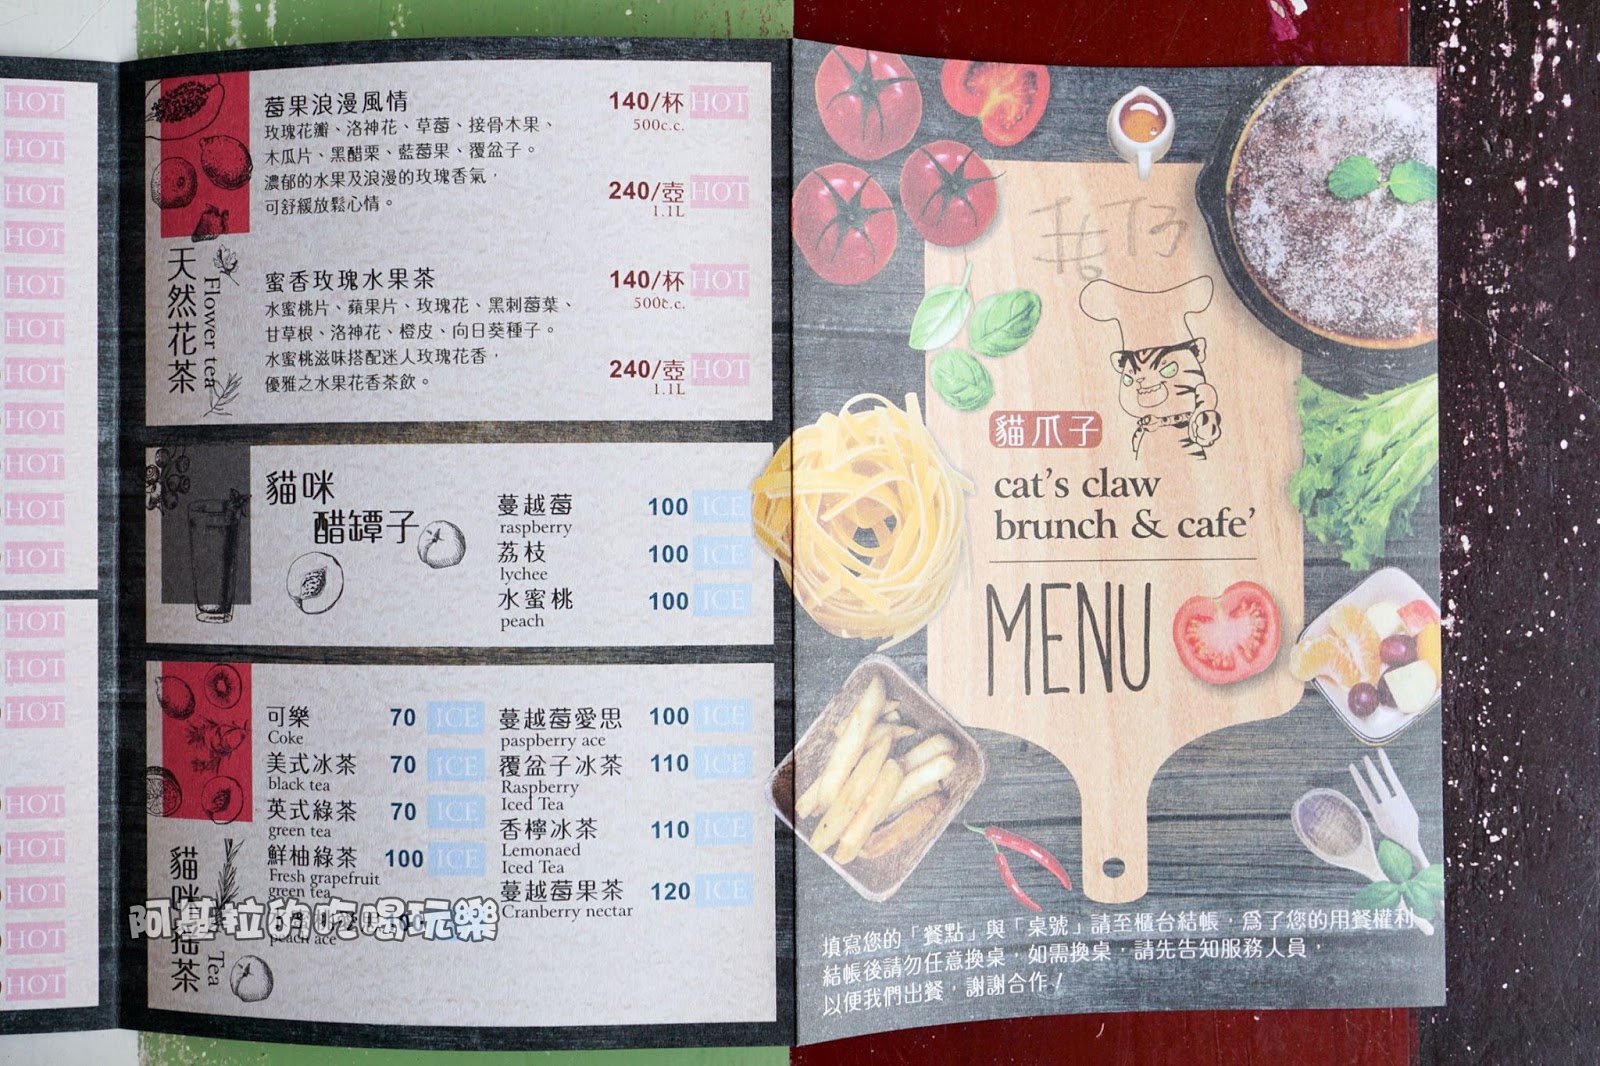 HOT
HOT
HOT
HOT
HOT
HOT
HOT
HOT
HOT
HOT
HOT
HOT
HOT
HOT
HOT
HOT
HOT
HOT
HOT
天然花茶
Flower tea
莓果浪漫風情 140/杯 HOT
500c.c.
玫瑰花瓣、洛神花、草莓、接骨木果、
木瓜片、黑醋栗、藍莓果、覆盆子。
濃郁的水果及浪漫的玫瑰香氣，
可舒緩放鬆心情。
240/壺 HOT
1.1L
蜜香玫瑰水果茶 140/杯 HOT
500c.c.
水蜜桃片、蘋果片、玫瑰花、黑刺莓葉、
甘草根、洛神花、橙皮、向日葵種子。
水蜜桃滋味搭配迷人玫瑰花香，
優雅之水果花香茶飲。
240/壺 HOT
1.1L
貓咪
醋罈子
蔓越莓 100 ICE
raspberry
荔枝 100 ICE
lychee
水蜜桃 100 ICE
peach
可樂 70 ICE
Coke
美式冰茶 70 ICE
black tea
英式綠茶 70 ICE
green tea
鮮柚綠茶 100 ICE
Fresh grapefruit
green tea
peach ace
蔓越莓愛思 100 ICE
paspberry ace
覆盆子冰茶 110 ICE
Raspberry
Iced Tea
香檸冰茶 110 ICE
Lemonaed
Iced Tea
蔓越莓果茶 120 ICE
Cranberry nectar
貓咪搖茶
Tea
阿基拉的吃喝玩樂
貓爪子
cat's claw
brunch & cafe'
MENU
填寫您的「餐點」與「桌號」請至櫃台結帳，為了您的用餐權利
結帳後請勿任意換桌，如需換桌，請先告知服務人員，
以便我們出餐，謝謝合作！